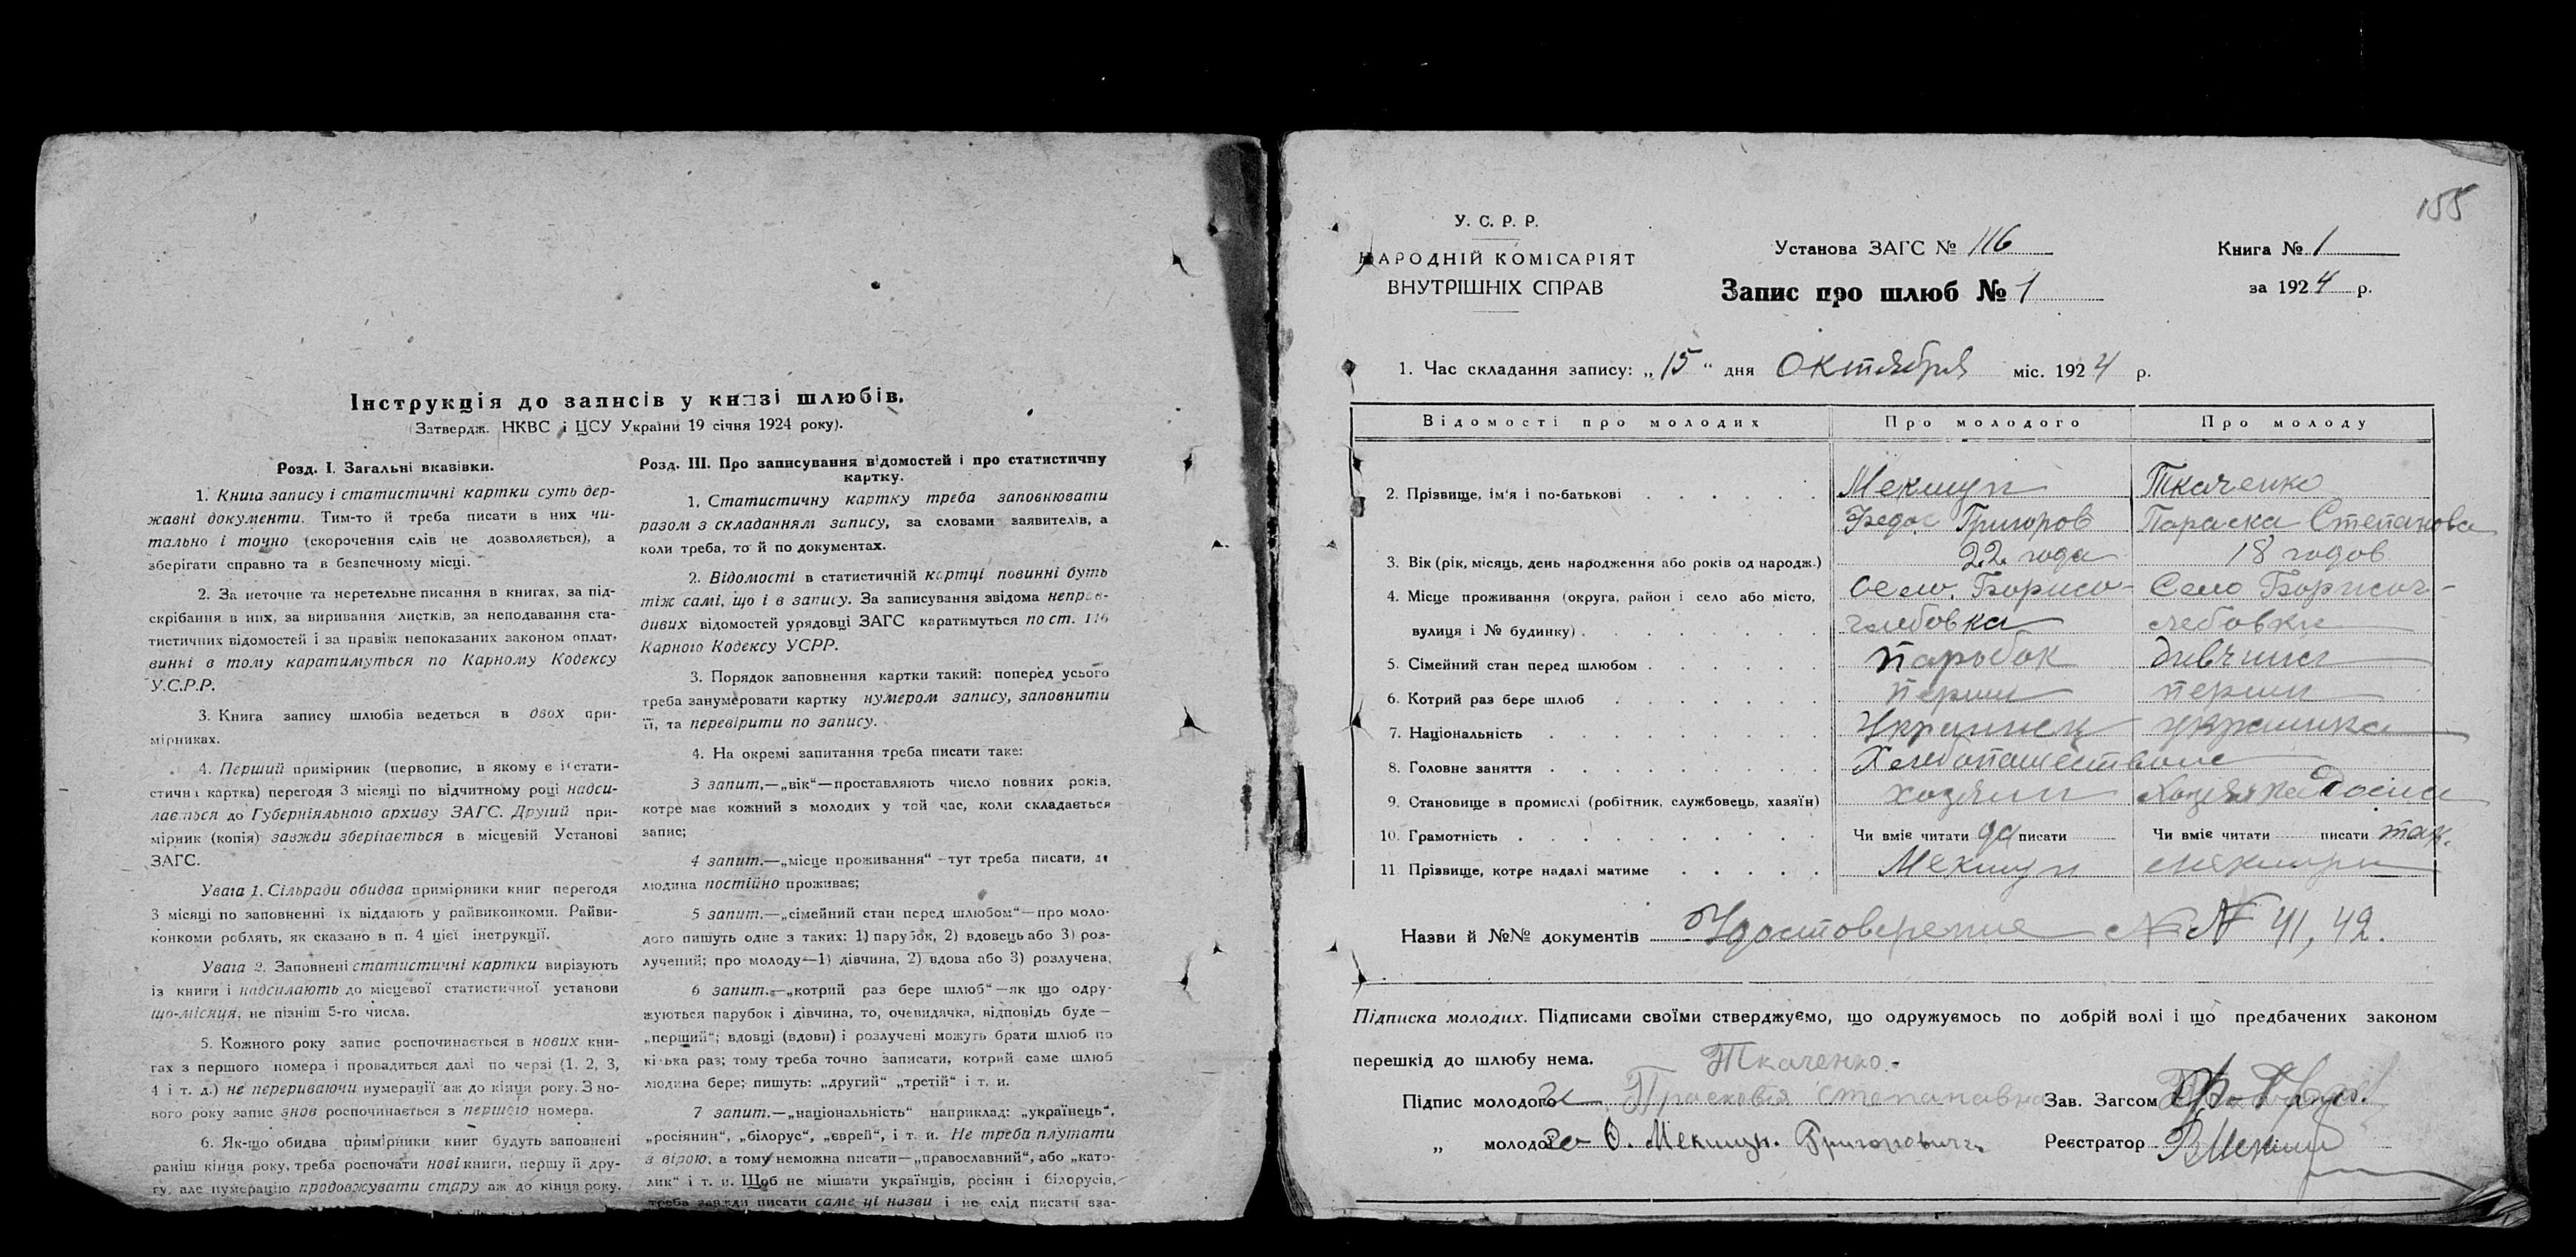 Інструкція до записів у книзі шлюбів.
(Затвердж. НКВС і ЦСУ України 19 січня 1924 року).
Розд. І. Загальні вказівки.
1. Книга запису і статистичні картки суть дер-
жавні документи. Тим-то й треба писати в них чи-
тально і точно (скорочення слів не дозволяється), а
зберігати справно та в безпечному місці.
2. За неточне та неретельне писання в книгах, за під-
скрібання в них, за виривання листків, за неподавання ста-
тистичних відомостей і за правіж непоказаних законом оплат,
винні в тому каратимуться по Карному Кодексу
У.С.Р.Р.
3. Книга запису шлюбів ведеться в двох при-
мірниках.
4. Перший примірник (первопис, в якому є і стати-
стична картка) перегодя 3 місяці по відчитному році надси-
лається до Губерніяльного архиву ЗАГС. Другий при-
мірник (копія) завжди зберігається в місцевій Установі
ЗАГС.
Увага 1. Сільради обидва примірники книг перегодя
3 місяці по заповненні їх віддають у райвиконкоми. Райви-
конкоми роблять, як сказано в п. 4 цієї інструкції.
Увага 2. Заповнені статистичні картки вирізують
із книги і надсилають до місцевої статистичної установи
що-місяця, не пізніш 5-го числа.
5. Кожного року запис роспочинається в нових кни-
гах з першого номера і провадиться далі по черзі (1. 2, 3,
4 і т. д.) не перериваючи нумерації аж до кінця року. З но-
вого року запис знов роспочинається з першого номера.
6. Як-що обидва примірники книг будуть заповнені
раніш кінця року, треба роспочати нові книги, першу й дру-
гу, але нумерацію продовжувати стару аж до кінця року.
Розд. III. Про записування відомостей і про статистичну
картку.
1. Статистичну картку треба заповнювати
разом з складанням запису, за словами заявителів, а
коли треба, то й по документах.
2. Відомості в статистичній картці повинні буть
тіж самі, що і в запису. За записування звідома неправ-
дивих відомостей урядовці ЗАГС каратимуться по ст. 116
Карного Кодексу УСРР.
3. Порядок заповнення картки такий: поперед усього
треба занумеровати картку нумером запису, заповнити
її, та перевірити по запису.
4. На окремі запитання треба писати таке:
3 запит.—„вік“—проставляють число повних років,
котре має кожний з молодих у той час, коли складається
запис;
4 запит.—„місце проживання“ -тут треба писати, де
людина постійно проживає;
5 запит.—„сімейний стан перед шлюбом“—про моло-
дого пишуть одне з таких: 1) парубок, 2) вдовець або 3) роз-
лучений; про молоду—1) дівчина, 2) вдова або 3) розлучена;
6 запит.—„котрий раз бере шлюб“—як що одру-
жуються парубок і дівчина, то, очевидячка, відповідь буде—
„перший“; вдовці (вдови) і розлучені можуть брати шлюб по
кілька раз; тому треба точно записати, котрий саме шлюб
людина бере; пишуть: „другий“ „третій“ і т. и.
7 запит.—„національність“ наприклад: „українець“,
„росіянин“, „білорус“, „єврей“, і т. и. Не треба плутати
з вірою, а тому неможна писати—„православний“, або „като-
лик“ і т. и. Щоб не мішати українців, росіян і білорусів,
треба завжди писати саме ці назви і не слід писати вза-
155
У. С. Р. Р.
НАРОДНІЙ КОМІСАРІЯТ
ВНУТРІШНІХ СПРАВ
Установа ЗАГС № 116
Запис про шлюб № 1
Книга № 1
за 1924 р.
1. Час складання запису: „15“ дня Октября міс. 1924 р.
Відомості про молодих Про молодого Про молоду
2. Прізвище, ім'я і по-батькові Мекшун Ткаченко
Федос Григоров Параска Степанова
3. Вік (рік, місяць, день народження або років од народж.) 22 года 18 годов
4. Місце проживання (округа, район і село або місто, село Борисо- Село Борисог-
вулиця і № будинку) глебовка лебовка
5. Сімейний стан перед шлюбом парубок дивчина
6. Котрий раз бере шлюб перши перши
7. Національність Украинец украинка
8. Головне заняття Хлебопашество
9. Становище в промислі (робітник, службовець, хазяїн) хозяин Хозяйка
10. Грамотність Чи вміє читати да писати Чи вміє читати писати так.
11. Прізвище, котре надалі матиме Мекшун Мекшун
Назви й №№ документів Удостоверение №№ 41, 42.
Підписка молодих. Підписами своїми стверджуємо, що одружуємось по добрій волі і що предбачених законом
перешкід до шлюбу нема.
Ткаченко.
Підпис молодого Прасковія Степановна Зав. Загсом
„ молодої Ф. Мекшун. Григорович Реєстратор